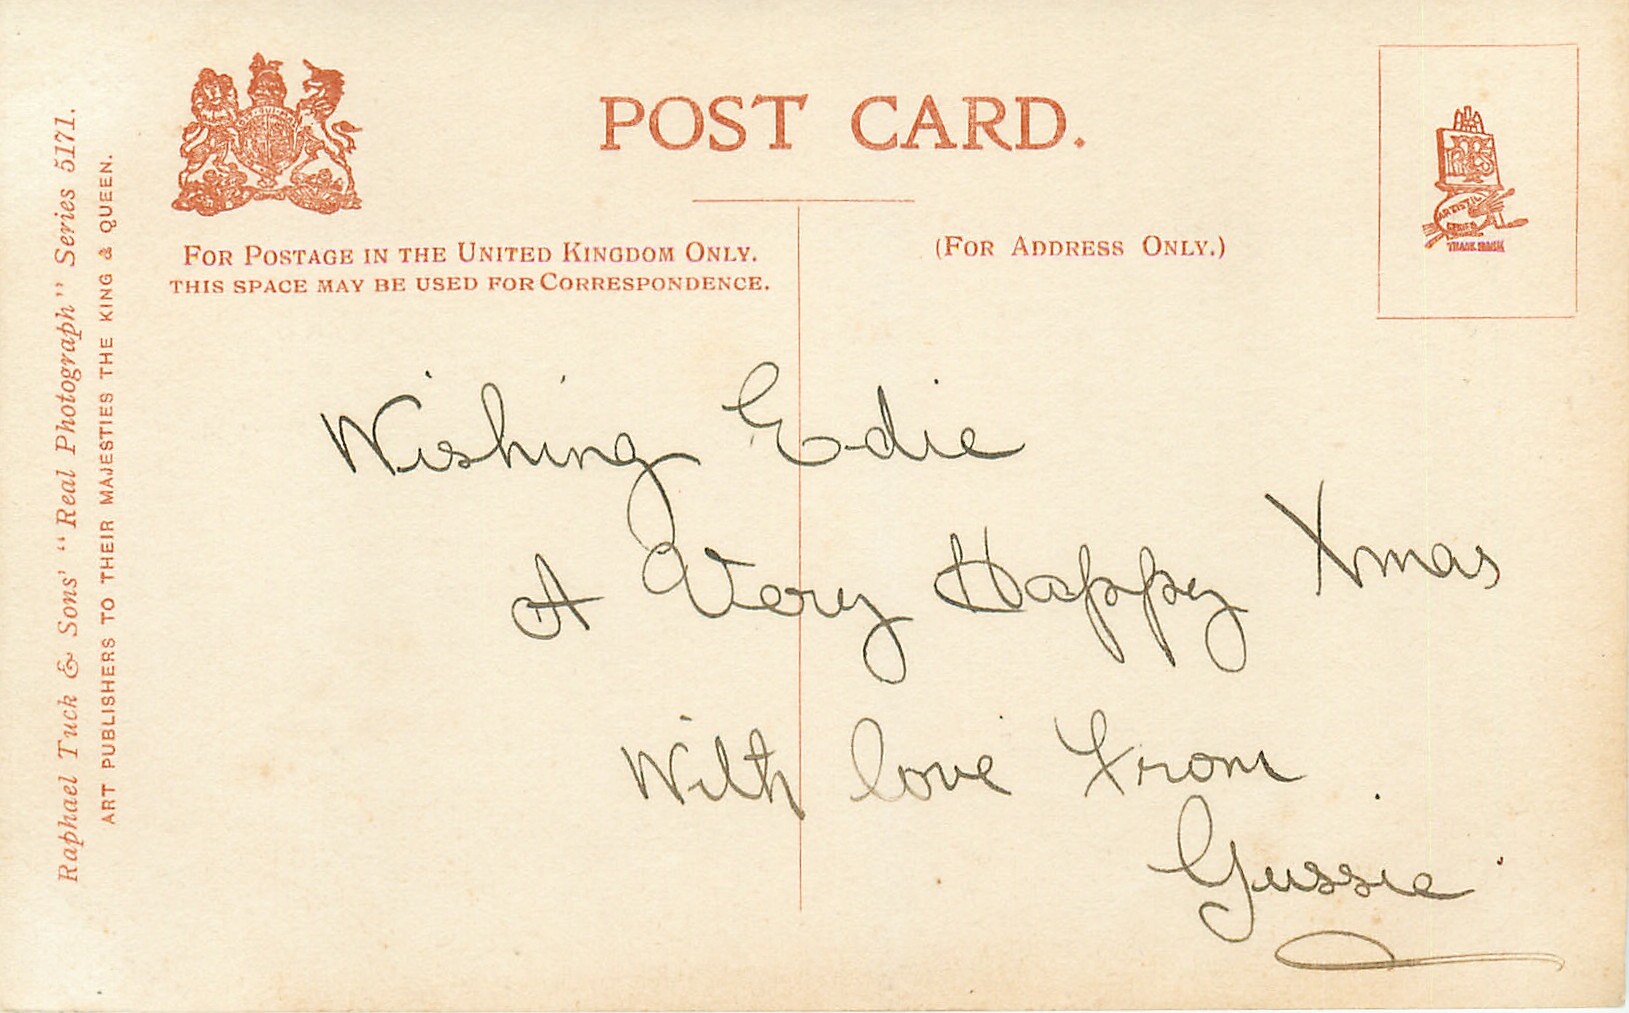 Raphael Tuck & Sons' "Real Photograph" Series 5171.
ART PUBLISHERS TO THEIR MAJESTIES THE KING & QUEEN.
POST CARD.
FOR POSTAGE IN THE UNITED KINGDOM ONLY.
THIS SPACE MAY BE USED FOR CORRESPONDENCE.
(FOR ADDRESS ONLY.)
TRADE MARK
Wishing Edie
A Very Happy Xmas
With love from
Gussie